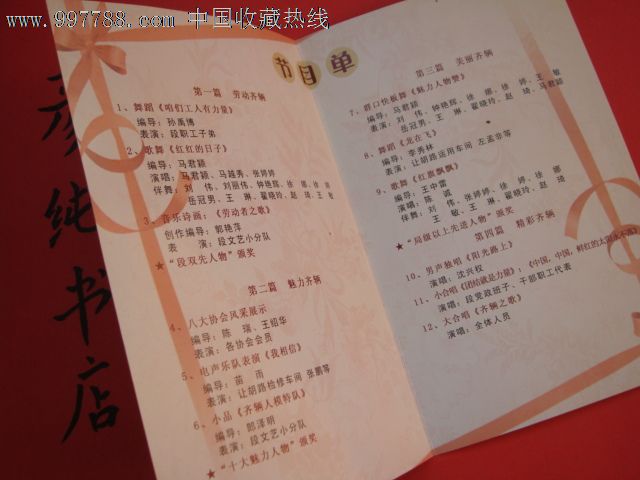 www.997788.com 中国收藏热线
节目单
第一篇 劳动齐辆
1、舞蹈《咱们工人有力量》
编导：孙禹博
表演：段职工子弟
2、歌舞《红红的日子》
编导：马君颖
演唱：马君颖、马越秀、张婷婷
伴舞：刘 伟、刘丽伟、钟艳辉、徐 娜、徐 婷
岳冠男、王 琳、翟晓玲、赵 琦、王 敏
3、音乐诗画：《劳动者之歌》
创作编导：郭艳萍
表 演：段文艺小分队
★“段双先人物”颁奖
第二篇 魅力齐辆
4、八大协会风采展示
编导：陈 瑞、王绍华
表演：各协会会员
5、电声乐队表演《我相信》
编导：苗 雨
表演：让胡路检修车间 张鹏等
6、小品《齐辆人模特队》
编导：郎泽明
表演：段文艺小分队
★“十大魅力人物”颁奖
第三篇 美丽齐辆
7、群口快板舞《魅力人物赞》
编导：马君颖
表演：刘 伟、钟艳辉、徐 娜、徐 婷、王 敏
岳冠男、王 琳、翟晓玲、赵 琦、马君颖
8、舞蹈《北在飞》
编导：李秀林
表演：让胡路运用车间 左孟非等
9、歌舞《红旗飘飘》
编导：王中雷
演唱：陈 诚
伴舞：刘 伟、张婷婷、徐 婷、徐 娜
王 敏、王 琳、翟晓玲、赵 琦
★“局级以上先进人物”颁奖
第四篇 精彩齐辆
10、男声独唱《阳光路上》
演唱：沈兴权
11、小合唱《团结就是力量》；《中国，中国，鲜红的太阳永不落》
演唱：段党政班子、干部职工代表
12、大合唱《齐辆之歌》
演唱：全体人员
纯书店